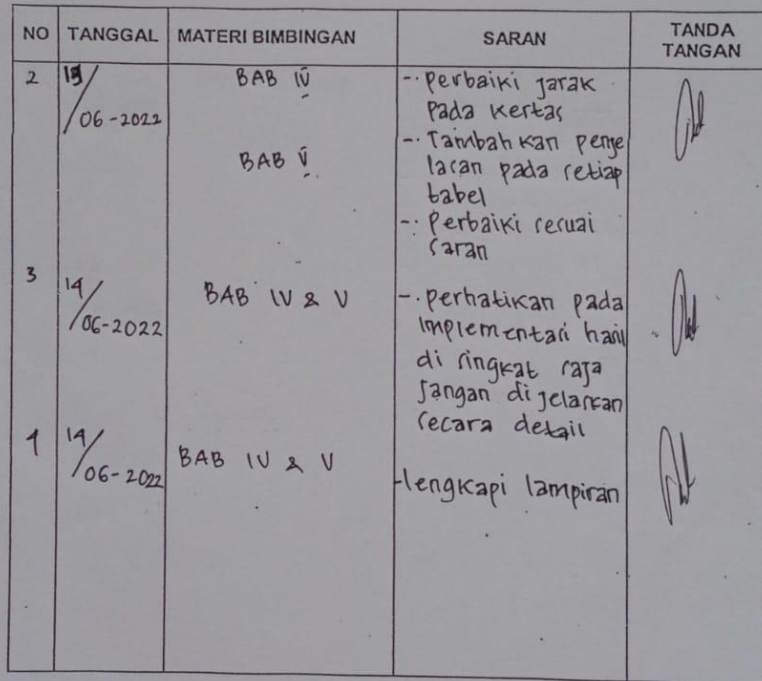 NO TANGGAL MATERI BIMBINGAN SARAN TANDA TANGAN
2 13/06-2022 BAB IV -. perbaiki jarak
pada kertas
BAB V -. Tambahkan penje
lasan pada setiap
tabel
-. Perbaiki sesuai
saran
3 14/06-2022 BAB IV & V -. perhatikan pada
implementasi hasil
di singkat saja
jangan di jelaskan
secara detail
4 14/06-2022 BAB IV & V
-lengkapi lampiran